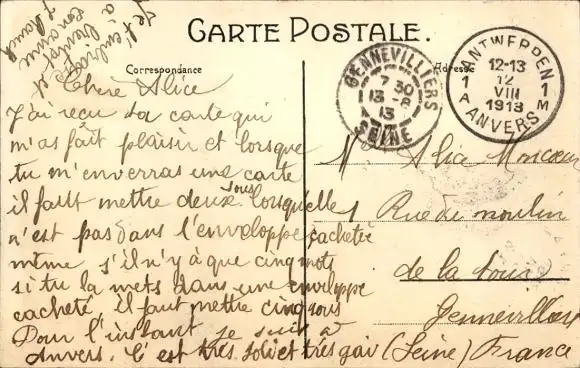 Je t'embrasse
à bientôt
ton amie
CARTE POSTALE.
Correspondance
Adresse
GENNEVILLIERS
7 30
13 -8
13
SEINE
ANTWERPEN
12-13
12
VIII
1913
1 A
1 M
ANVERS
Chere Alice
J'ai reçu ta carte qui
m'as fait plaisir et lorsque
tu m'enverras une carte
il fallt mettre deux sous lorsqu'elle
n'est pas dans l'enveloppe cachetée
même s'il n'y à que cinq mots
si tu la mets dans une enveloppe
cacheté, il faut mettre cinq sous
Pour l'instant je suis à
Anvers. C'est très joli et très gai
Alice
Rue du moulin
de la tour
Gennevilliers
(Seine) France